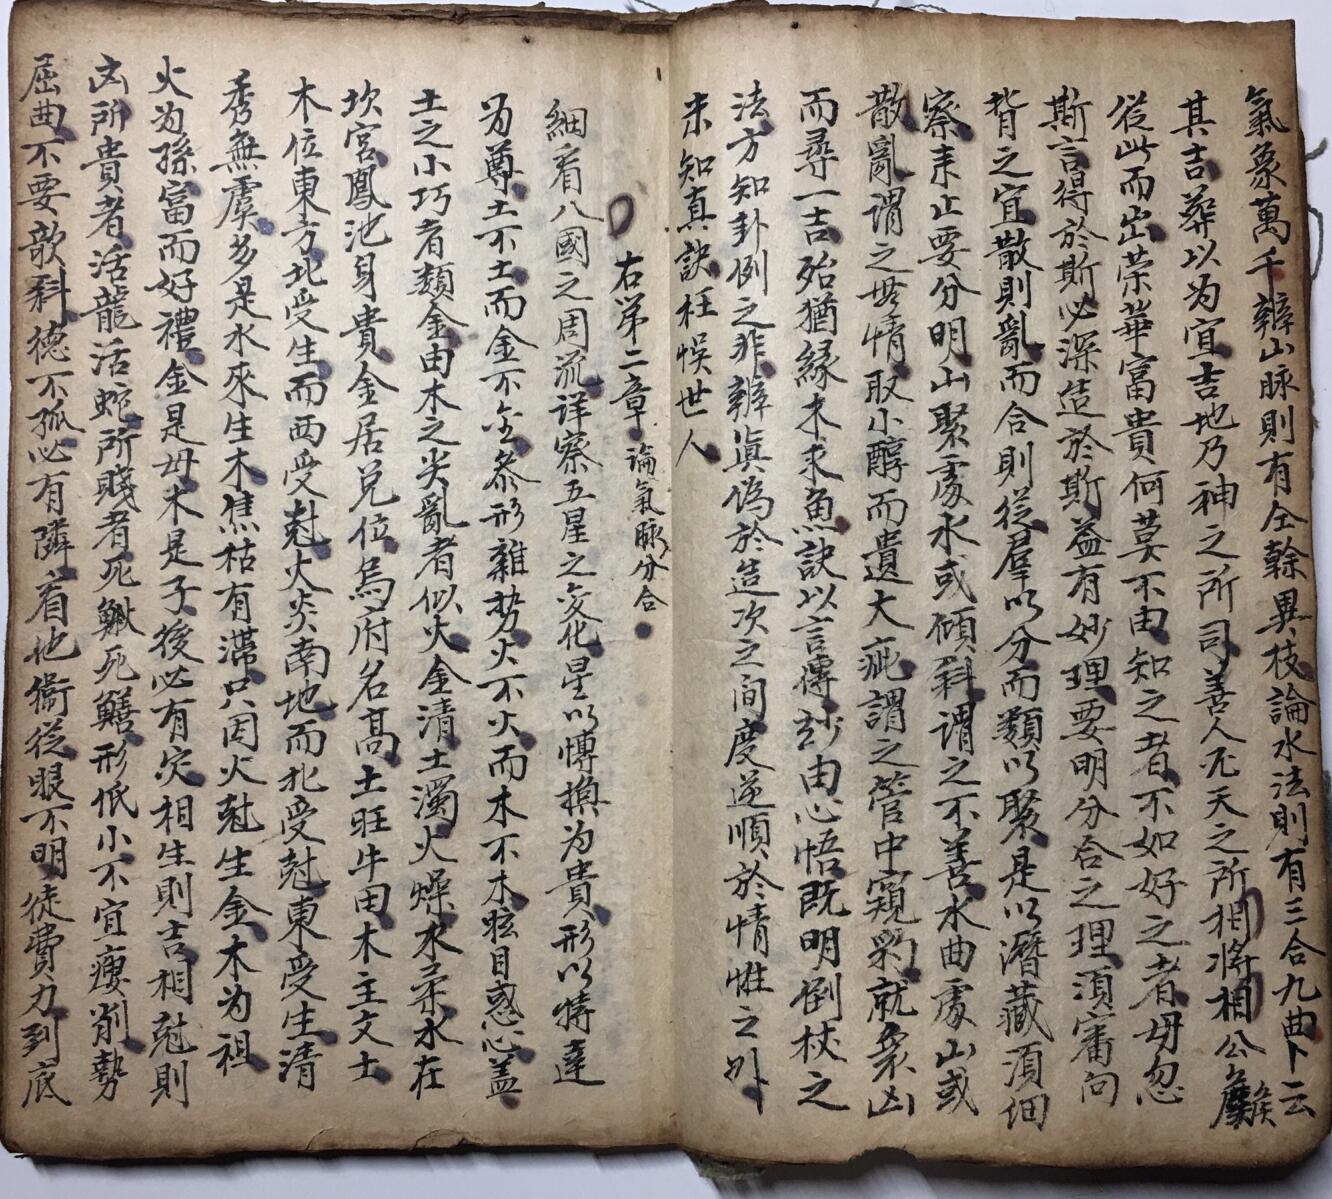 氣象萬千辨山脉則有仝榦異枝論水法則有三合九曲卜云
其吉葬以为宜吉地乃神之所司善人亢天之所相將相公侯
从此而出荣華富貴何莫不由知之者不如好之者毋忽
斯言得於斯必深造於斯益有妙理要明分合之理須審向
背之宜散則亂而合則從羣以分而類以聚是以潛藏須细
察来止要分明山聚䖏水或倾科謂之不善水曲處山或
散亂謂之世情取小醇而遺大疵謂之管中窺豹就衆凶
而尋一吉殆猶緣木求魚訣以言傳玅由心悟既明倒杖之
法方知卦例之非辨真偽於造次之间度逆順於情性之外
未知真訣枉悮世人
右第二章 論氣脉分合
細看八國之周流详察五星之变化星以慱換为貴形以特達
为尊土不土而金不金参形雜势火不火而木不木眩目惑心盖
土之小巧者類金由木之尖亂者似火金清土濁火燥水柔水在
坎宮鳳池身貴金居兑位烏府名髙土旺牛田木主文士
木位東方北受生而西受尅火炎南地而北受尅東受生清
秀無虞多是水來生木焦枯有滯只因火尅生金木为祖
火为孫富而好禮金是母木是子後必有灾相生則吉相尅則
凶所貴者活龍活蛇所賤者死鰍死鱔形低小不宜瘦削勢
屈曲不要欹科德不孤必有隣看他衞從眼不明徒費力到底